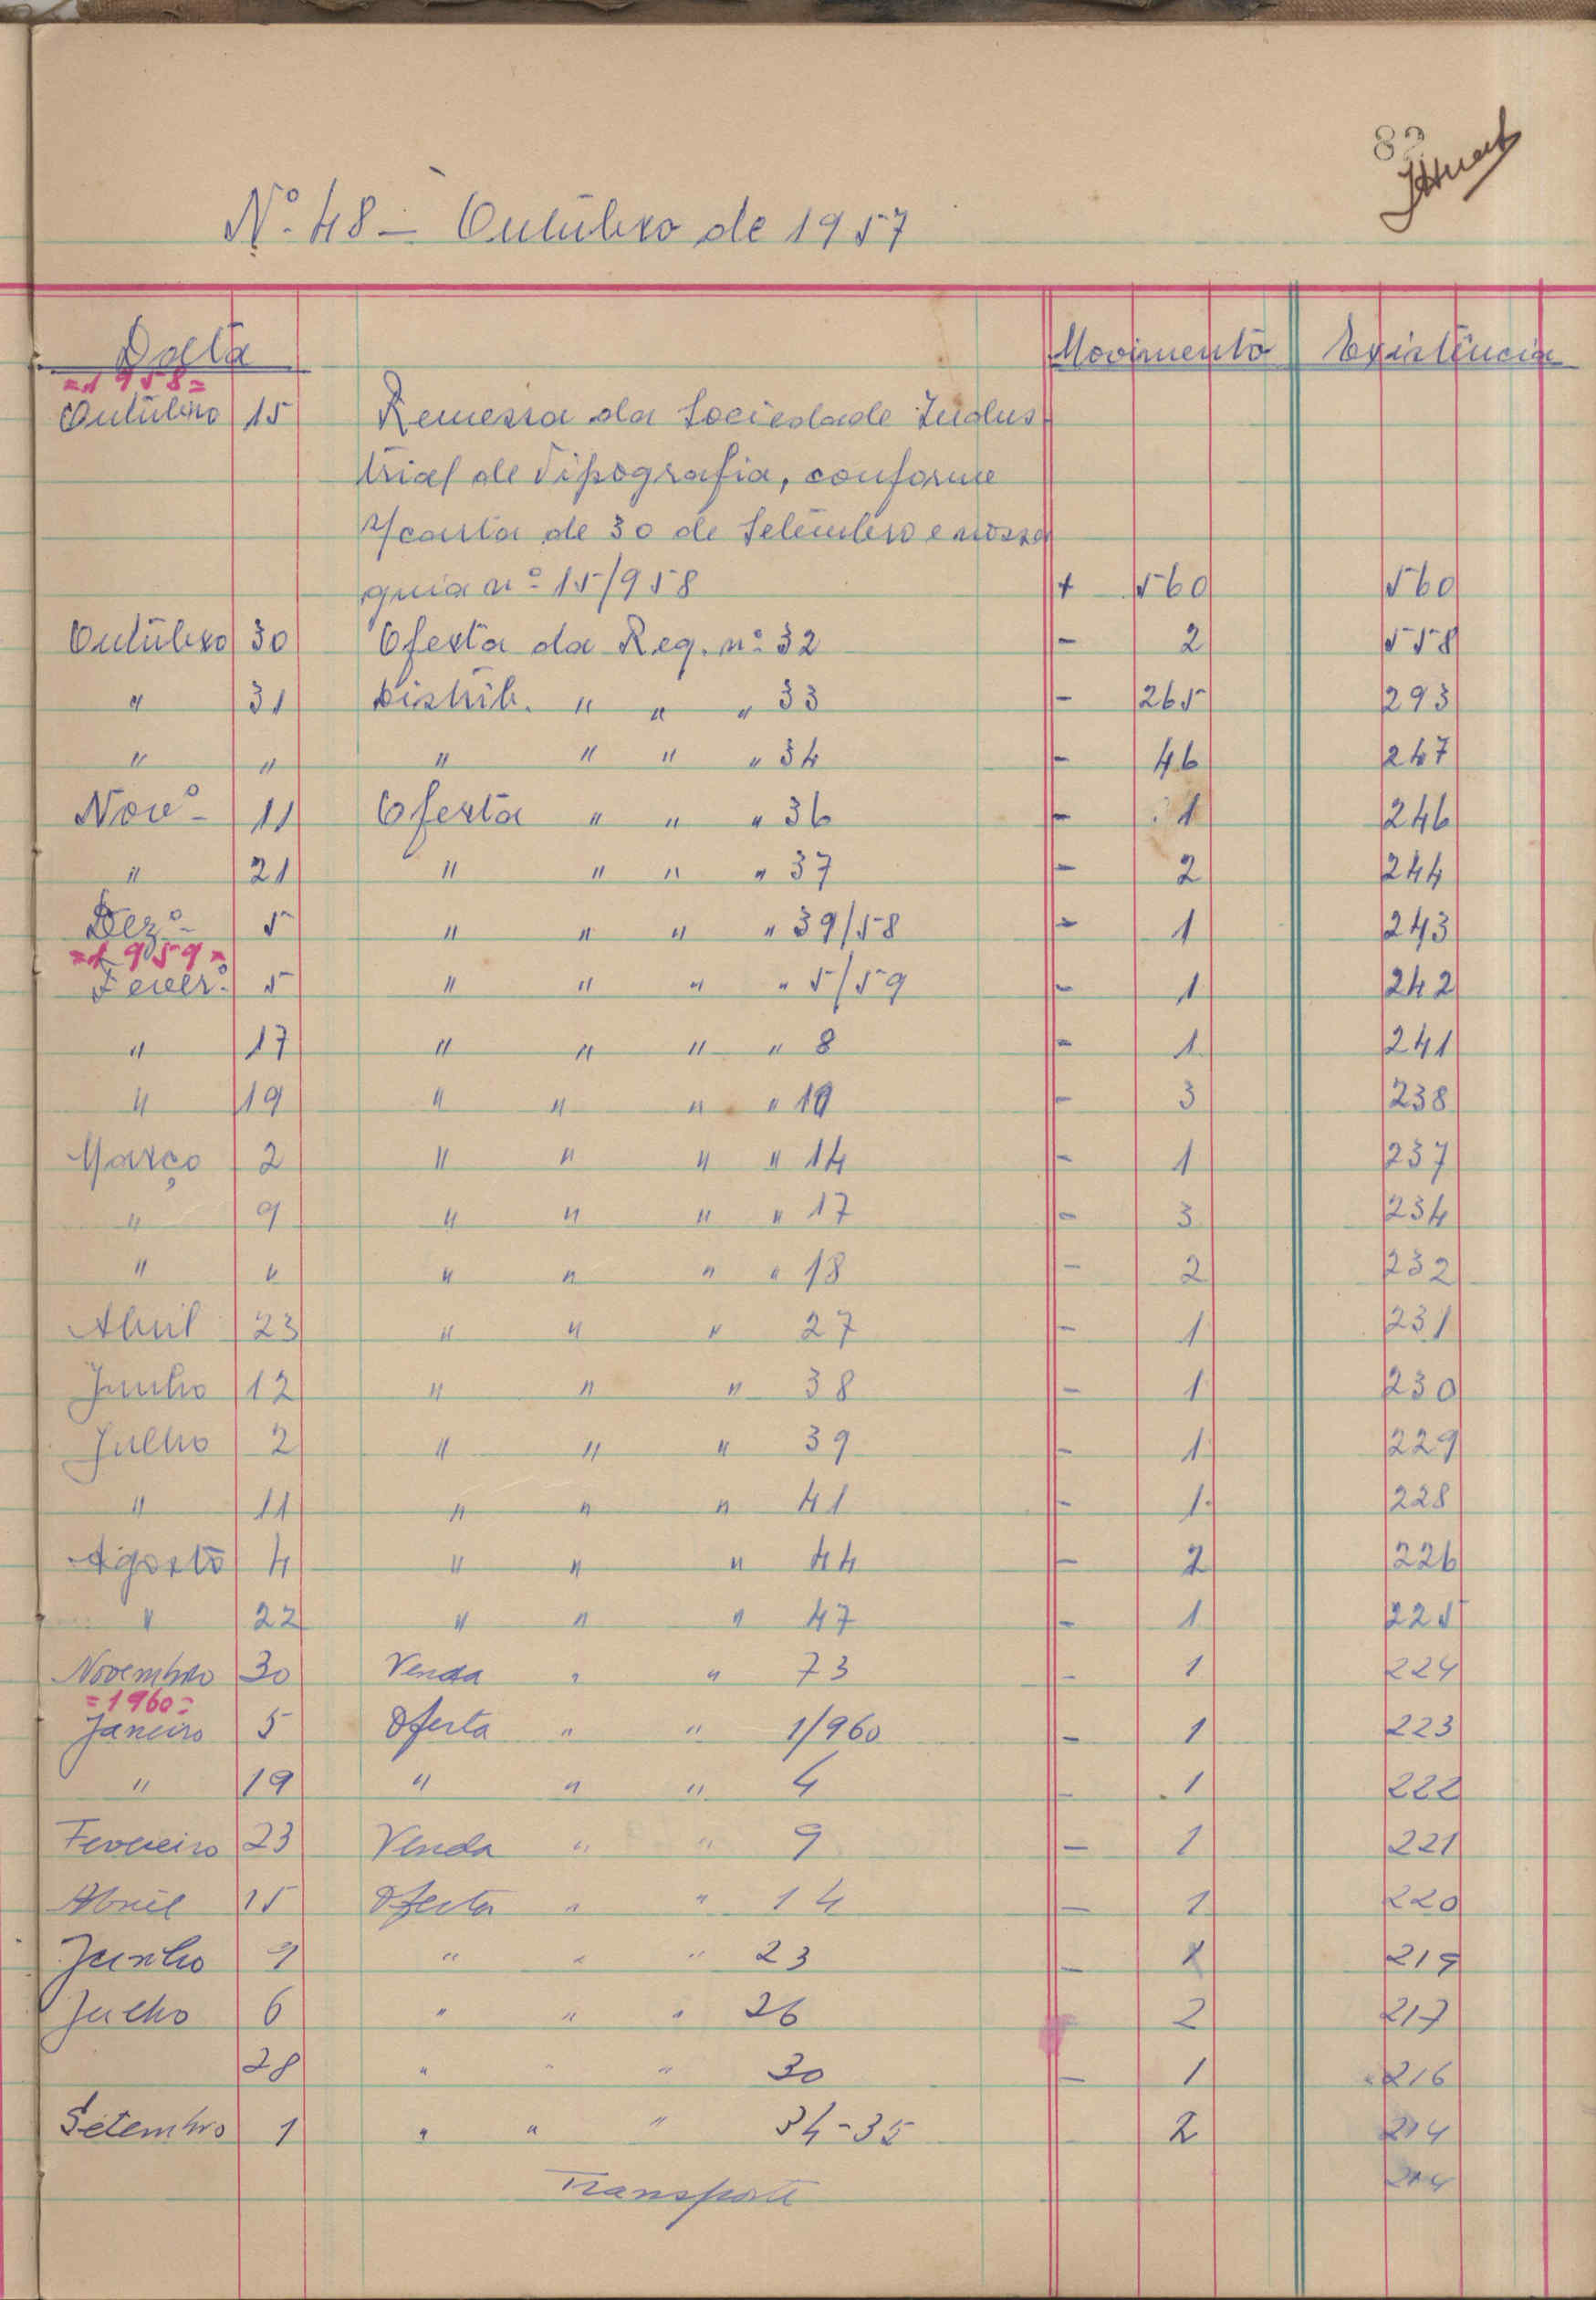 82
Nº 48 — Outubro de 1957
Data Movimento Existência
=1958=
Outubro 15 Remessa da Sociedade Indus
trial de Tipografia, conforme
s/carta de 30 de Setembro e nossa
guia nº 15/958 + 560 560
Outubro 30 Oferta da Req. nº 32 - 2 558
" 31 Distrib. " " " 33 - 265 293
" " " " " " 34 - 46 247
Novº 11 Oferta " " " 36 - 1 246
" 21 " " " " 37 - 2 244
Dezº 5 " " " " 39/58 - 1 243
=1959=
Feverº 5 " " " " 5/59 - 1 242
" 17 " " " " 8 - 1 241
" 19 " " " " 10 - 3 238
Março 2 " " " " 14 - 1 237
" 9 " " " " 17 - 3 234
" " " " " " 18 - 2 232
Abril 23 " " " 27 - 1 231
Junho 12 " " " 38 - 1 230
Julho 2 " " " 39 - 1 229
" 11 " " " 41 - 1 228
Agosto 4 " " " 44 - 2 226
" 22 " " " 47 - 1 225
Novembro 30 Venda " " 73 - 1 224
=1960=
Janeiro 5 Oferta " " 1/960 - 1 223
" 19 " " " 4 - 1 222
Fevereiro 23 Venda " " 9 - 1 221
Abril 15 Oferta " " 14 - 1 220
Junho 9 " " " 23 - 1 219
Julho 6 " " " 26 2 217
28 " " " 30 - 1 216
Setembro 1 " " " 34-35 2 214
Transporte 214